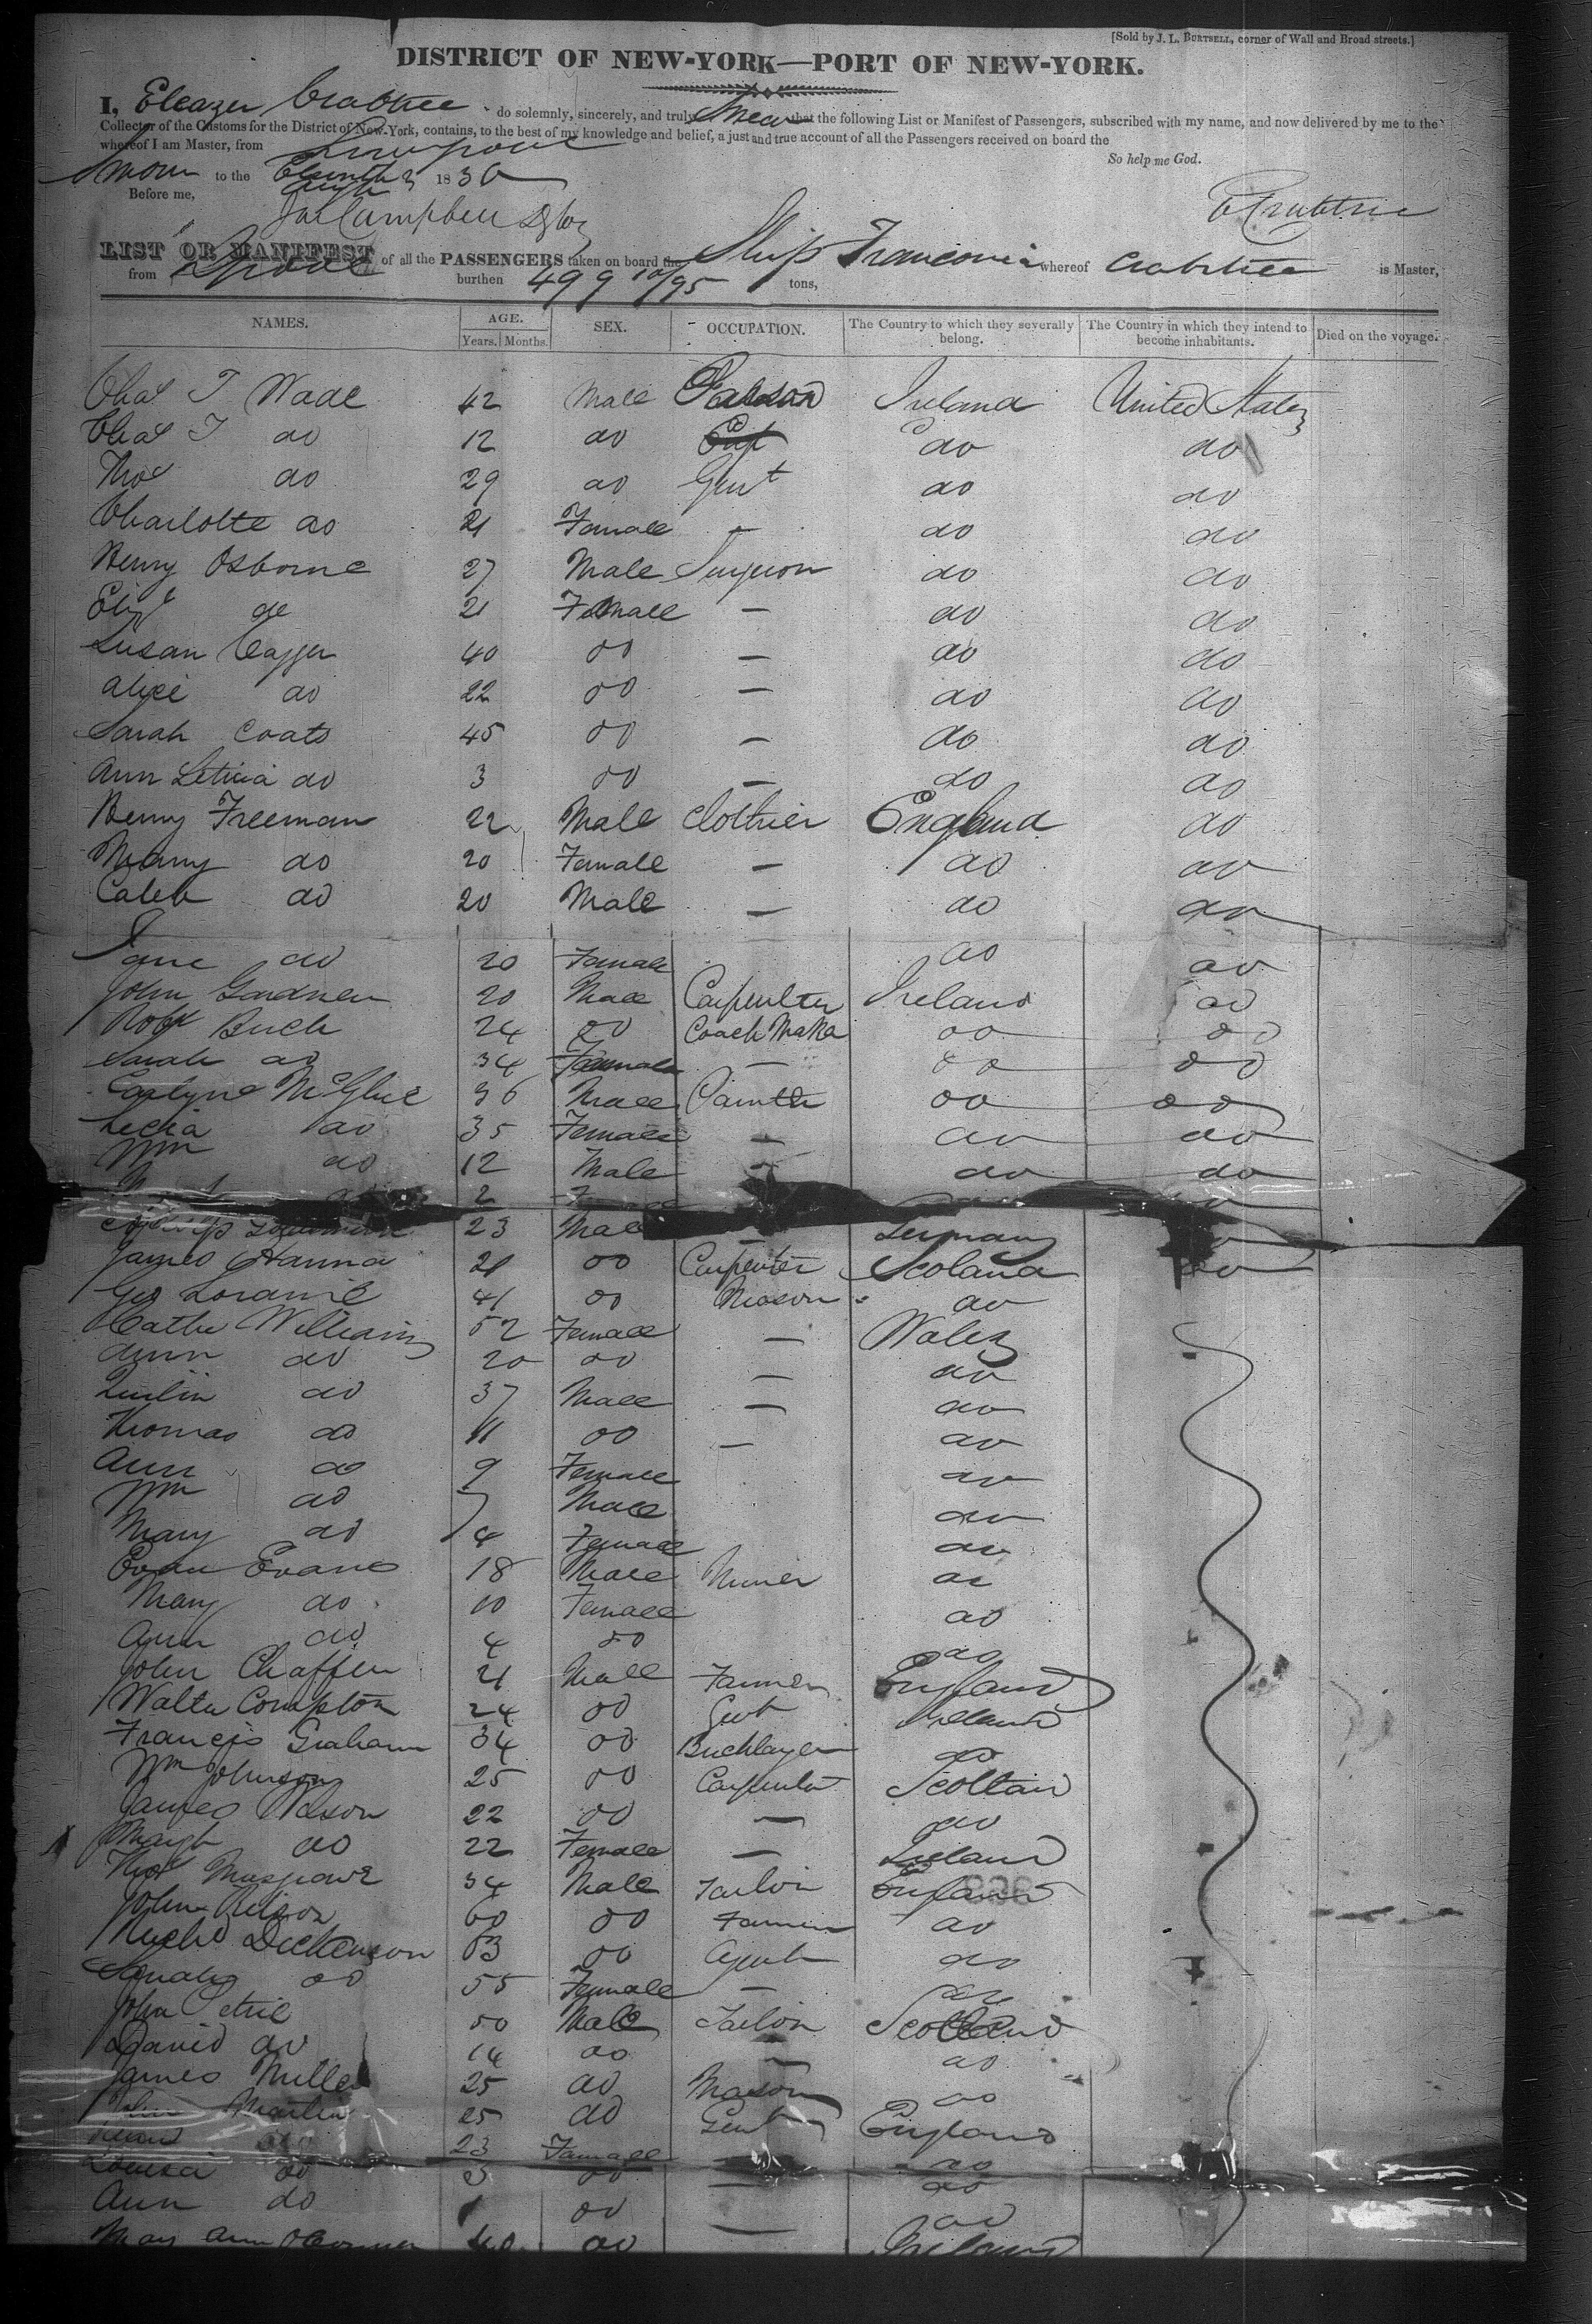 [Sold by J. L. BURTSELL, corner of Wall and Broad streets.]
DISTRICT OF NEW-YORK—PORT OF NEW-YORK.
I, Eleazer Crabtree do solemnly, sincerely, and truly Swear that the following List or Manifest of Passengers, subscribed with my name, and now delivered by me to the
Collector of the Customs for the District of New-York, contains, to the best of my knowledge and belief, a just and true account of all the Passengers received on board the
whereof I am Master, from Liverpool
So help me God.
Sworn to the 1836
Before me,
Jas Campbell
E Crabtree
LIST OR MANIFEST of all the PASSENGERS taken on board the Ship Franconia whereof Crabtree is Master,
from Lpool burthen 499 10/95 tons,
NAMES. AGE. SEX. OCCUPATION. The Country to which they severally belong. The Country in which they intend to become inhabitants. Died on the voyage.
Years. Months.
Chas T Wade 42 Male Ireland United States
Chas T do 12 do do do
Thos do 29 do Gent do do
Charlotte do 21 Female — do do
Henry Osborne 27 Male Surgeon do do
Eliz do 21 Female — do do
Susan 40 do — do do
Alice do 22 do — do do
Sarah Coats 45 do — do do
Ann Leticia do 3 do — do do
Henry Freeman 22 Male Clothier England do
Mary do 20 Female — do do
Caleb do 20 Male — do do
Jane do 20 Female do do
John Gardner 20 Male Carpenter Ireland do
Robt 24 do Coach Maker do do
Sarah do 34 Female — do do
McGlue 36 Male Painter do do
do 35 Female — do do
Wm do 12 Male — do do
2
23 Male — Germany
James Hanna 21 do Carpenter Scotland do
Geo 41 do Mason do
Cathe Williams 52 Female — Wales
Ann do 20 do — do
do 37 Male — do
Thomas do 11 do — do
Ann do 9 Female do
Wm do 7 Male do
Mary do 4 Female do
Evan Evans 18 Male Miner do
Mary do 10 Female do
Ann do 4 do do
John Chaffen 21 Male Farmer England
Walter Compton 24 do Gent Ireland
Francis Graham 34 do Bricklayer do
Wm Johnson 25 do Carpenter Scotland
James 22 do — do
Margt do 22 Female — Ireland
Thos Musgrave 34 Male Tailor England
John 60 do Farmer do
Dickenson 63 do Agent do
do 55 Female — do
John Petrie 50 Male Tailor Scotland
David do 14 do — do
James Miller 25 do Mason do
John Martin 25 do Gent England
23 Female — do
Louisa do 3 do — do
Ann do 1 do — do
Mary Ann 40 do Ireland